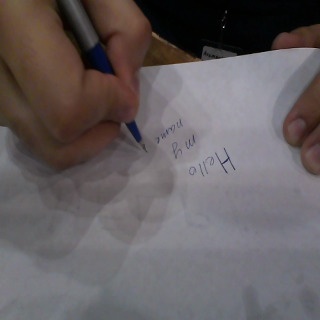 Hello
my
name